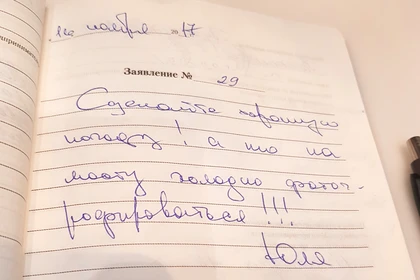 ноября 17
Заявление № 29
Сделайте хорошую
погоду! а то на
мосту холодно фотог-
рафироваться!!!
Юля